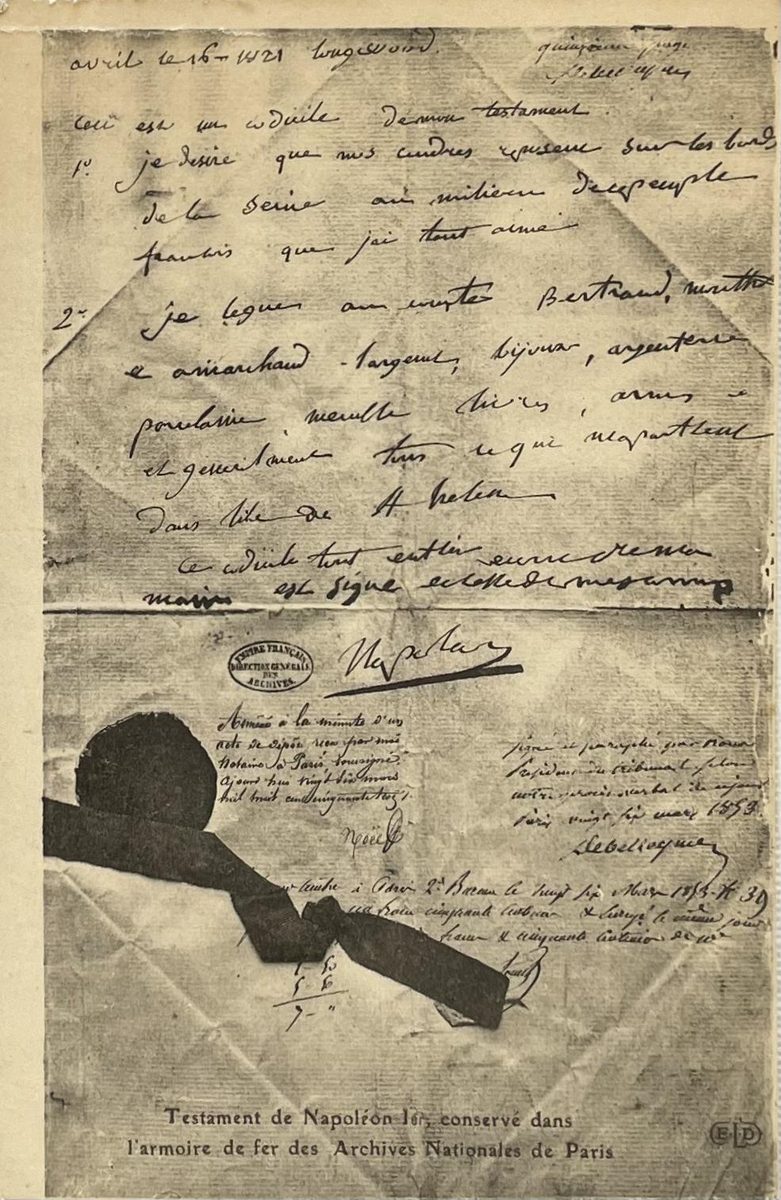 avril le 16 1821 longwood.
quinzième page
ceci est un codicile de mon testament
1° je desire que mes cendres reposent sur les bords
de la seine au milieu de ce peuple
francois que jai tant aimé
2° je legue au comte Bertrand, montho
e a marchand largent, bijoux, argenterie
porcelaine, meuble livres, armes e
et generalment tous ce qui mapartient
dans lile de St helene
ce codicile tout entier ecrit de ma
main est signé et scellé de mes armes
EMPIRE FRANÇAIS
DIRECTION GENERALE
DES
ARCHIVES
Napoleon
Annexé à la minute d'un
acte de dépôt reçu par moi
Notaire à Paris soussigné.
aujourd'hui vingt six mars
mil huit cent cinquante trois.
Noël
signé et paraphé par nous
Président du tribunal selon
notre procès verbal de ce jour
Paris vingt six mars 1853
Debelleyme
à Paris 2e Bureau le vingt six Mars 1853
cinquante centimes le même jour
francs cinquante centimes
Testament de Napoléon Ier, conservé dans
l'armoire de fer des Archives Nationales de Paris
ELD